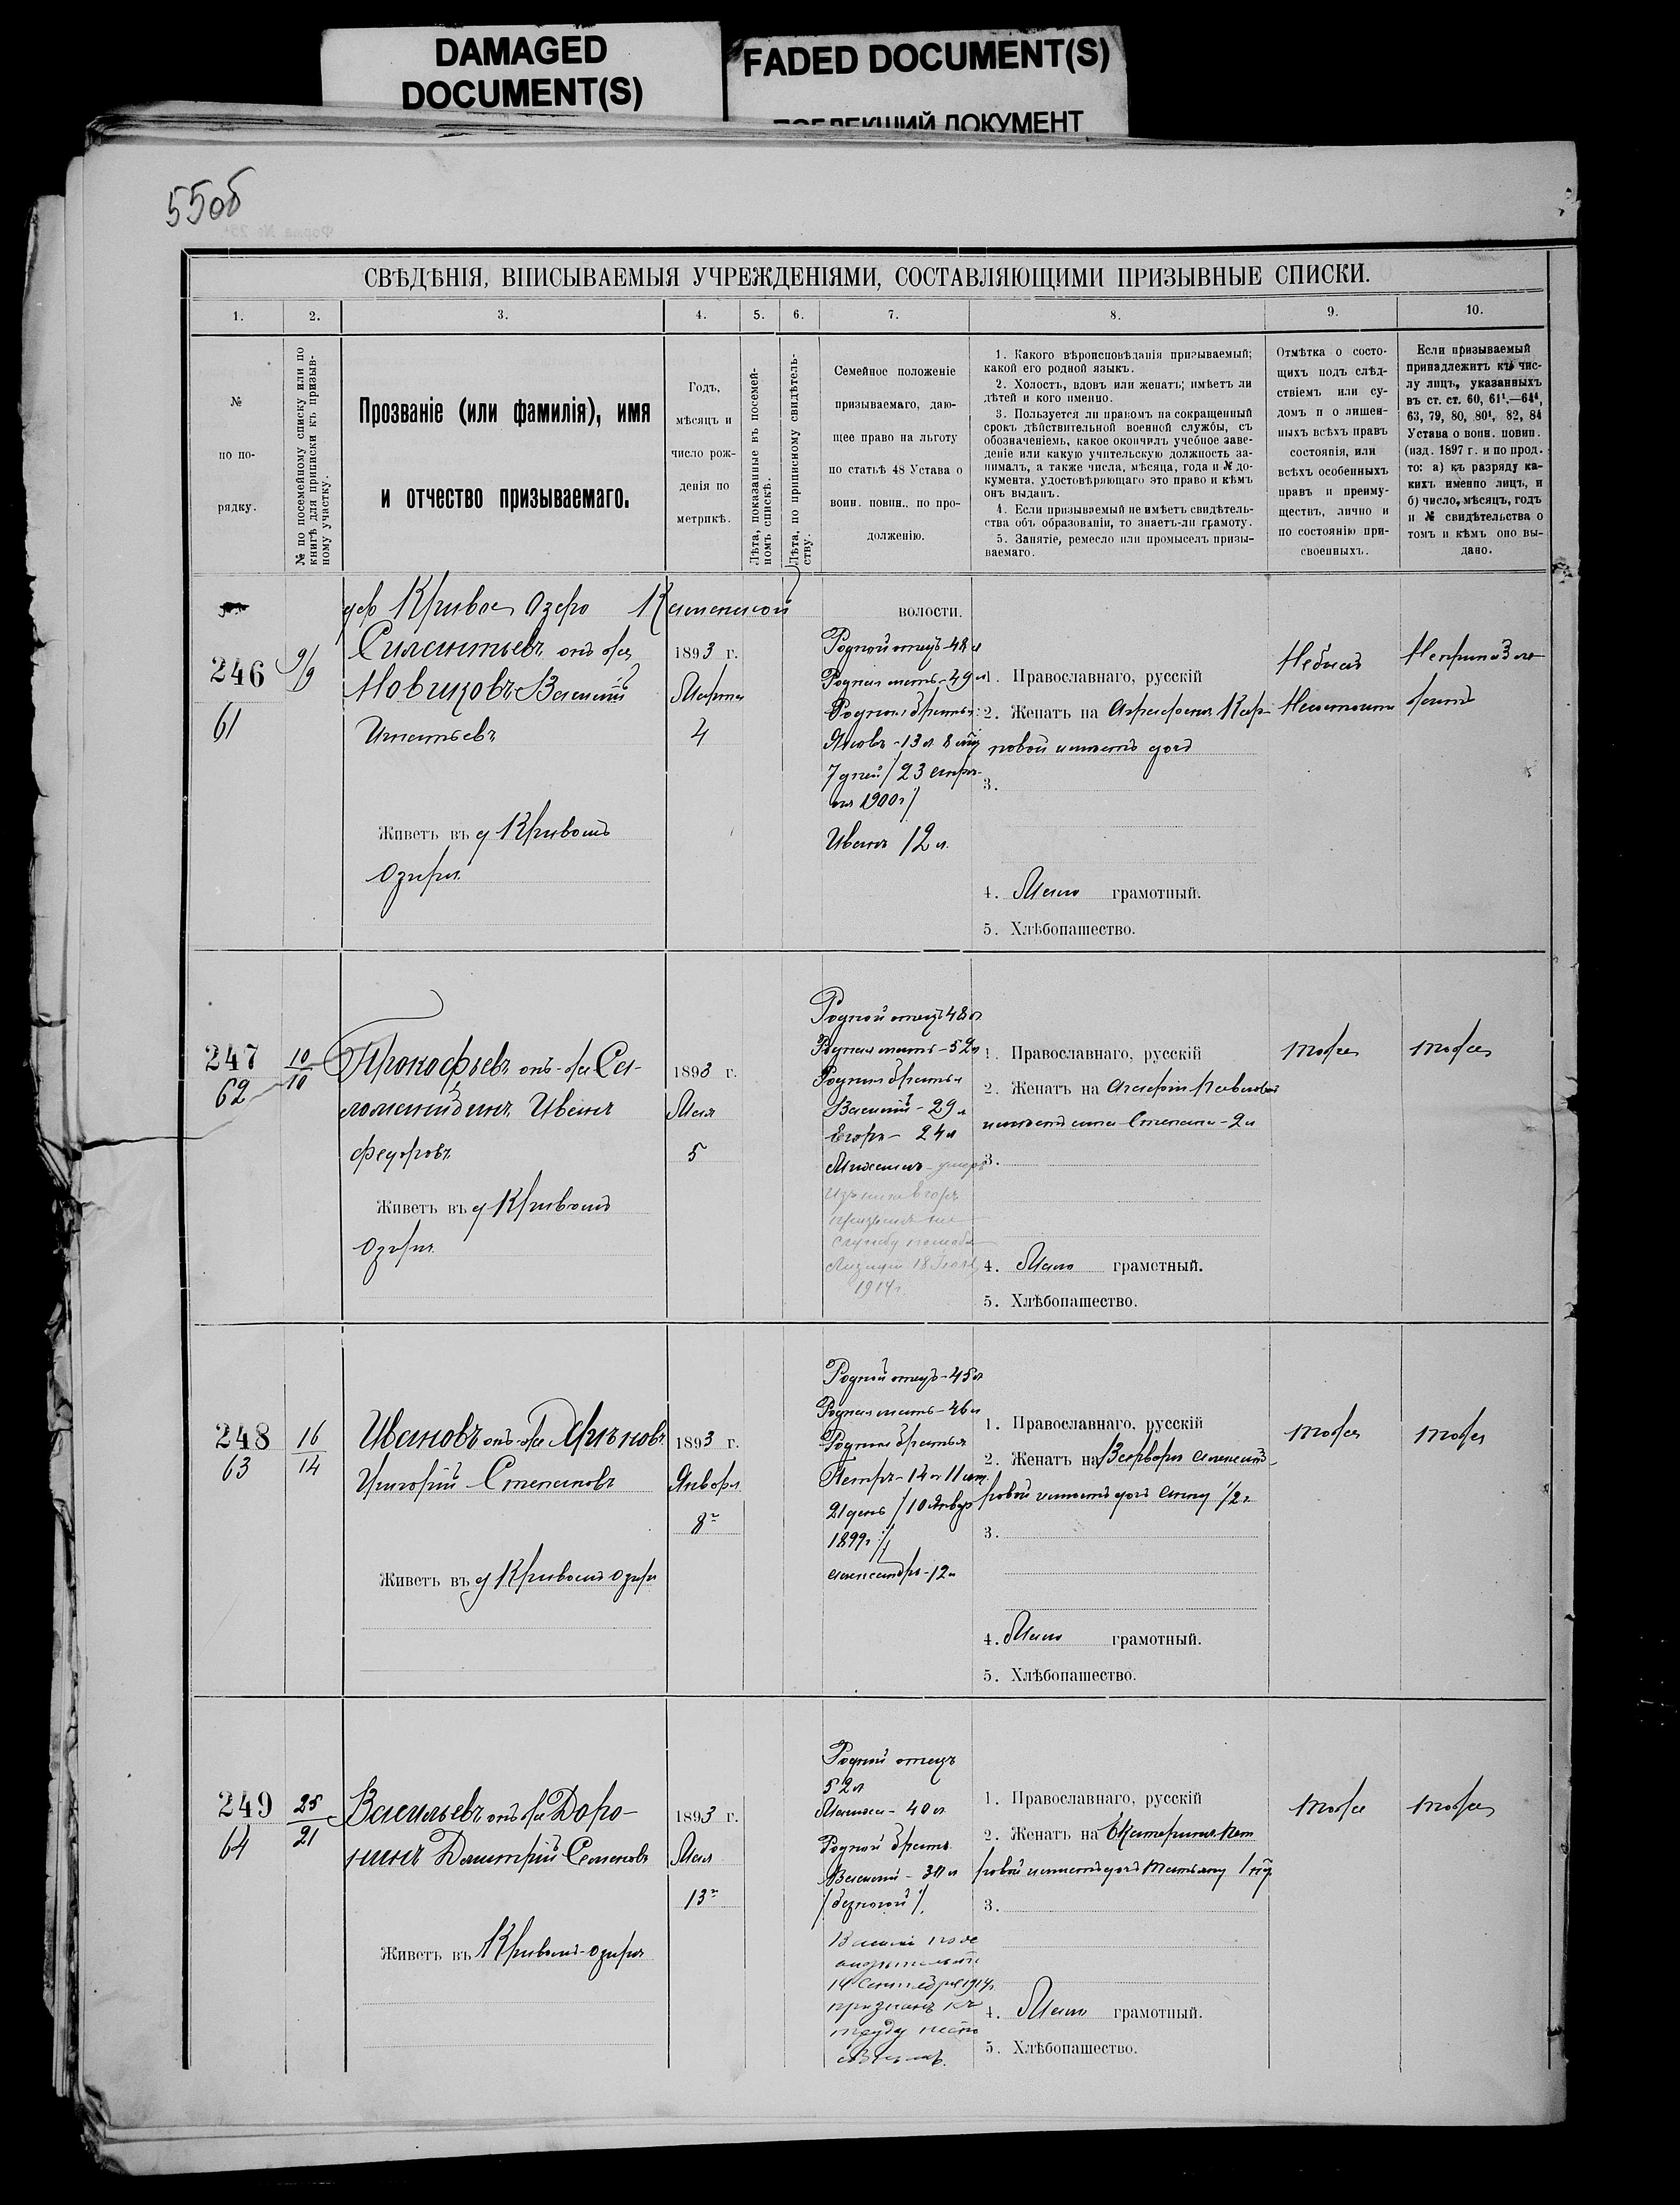 DAMAGED
DOCUMENT(S)
FADED DOCUMENT(S)
ПОБЛЕКШИЙ ДОКУМЕНТ
55об
СВѢДѢНІЯ, ВПИСЫВАЕМЫЯ УЧРЕЖДЕНІЯМИ, СОСТАВЛЯЮЩИМИ ПРИЗЫВНЫЕ СПИСКИ.
1. 2. 3. 4. 5. 6. 7. 8. 9. 10.
№
по по-
рядку.
№ по посемейному списку или по
книгѣ для приписки къ призыв-
ному участку.
Прозваніе (или фамилія), имя
и отчество призываемаго.
Годъ,
мѣсяцъ и
число рож-
денія по
метрикѣ.
Лѣта, показанные въ посемей-
номъ спискѣ.
Лѣта, по приписному свидѣтель-
ству.
Семейное положеніе
призываемаго, даю-
щее право на льготу
по статьѣ 48 Устава о
воин. повин., по про-
долженію.
1. Какого вѣроисповѣданія призываемый;
какой его родной языкъ.
2. Холостъ, вдовъ или женатъ; имѣетъ ли
дѣтей и кого именно.
3. Пользуется ли правомъ на сокращенный
срокъ дѣйствительной военной службы, съ
обозначеніемъ, какое окончилъ учебное заве-
деніе или какую учительскую должность за-
нималъ, а также числа, мѣсяца, года и № до-
кумента, удостовѣряющаго это право и кѣмъ
онъ выданъ.
4. Если призываемый не имѣетъ свидѣтель-
ства объ образованіи, то знаетъ-ли грамоту.
5. Занятіе, ремесло или промыселъ призы-
ваемаго.
Отмѣтка о состо-
щихъ подъ слѣд-
ствіемъ или су-
домъ и о лишен-
ныхъ всѣхъ правъ
состоянія, или
всѣхъ особенныхъ
правъ и преиму-
ществъ, лично и
по состоянію при-
своенныхъ.
Если призываемый
принадлежитъ къ чис-
лу лицъ, указанныхъ
въ ст. ст. 60, 61¹.—64⁴,
63, 79, 80, 80¹, 82, 84
Устава о воин. повин.
(изд. 1897 г. и по прод.
то: а) къ разряду ка-
кихъ именно лицъ, и
б) число, мѣсяцъ, годъ
и № свидѣтельства о
томъ и кѣмъ оно вы-
дано.
дер Кривое Озеро Каменской волости.
246
61
9/9
Силантьевъ онъ же
Новиковъ Василий
Игнатьевъ
Живетъ въ д Кривомъ
Озере
1893 г.
Марта
4
Родной отецъ-48 л
Родная мать-49 л
Родные братья:
Яковъ-13 л 8 мц
7 дней /23 апре-
ля 1900 г/
Иванъ 12 л.
1. Православнаго, русскій
2. Женатъ на Аграфене Кар-
повой имеетъ дочь
3.
4. Мало грамотный.
5. Хлѣбопашество.
Небылъ
Несостоитъ
247
62
10/10
Прокофьевъ онъ-же Са-
ломанидинъ Иванъ
Федоровъ
Живетъ въ д Кривомъ
Озере
1893 г.
Мая
5
Родной отецъ 48 л
Родная мать-52 л
Родные братья
Василий-29 л
Егоръ- 24 л
Михаилъ-умеръ
Изъ нихъ Егоръ
призванъ на
службу по моби
лизации 18 Июля
1914 г.
1. Православнаго, русскій
2. Женатъ на Агафии Павловой
имеетъ сына Степана-2 л
3.
4. Мало грамотный.
5. Хлѣбопашество.
тоже
тоже
248
63
16/14
Ивановъ онъ-же
Григорий Степановъ
Живетъ въ д Кривомъ Озере
1893 г.
Января
8го
Родной отецъ-45 л
Родная мать-46 л
Родные братья
Петръ-14 л 11 мц
21 день /10 Январ
1899 г/
Александръ-12 л
1. Православнаго, русскій
2. Женатъ на Варваре Александ-
ровой имеетъ дочь Анну 1/2 г.
3.
4. Мало грамотный.
5. Хлѣбопашество.
тоже
тоже
249
64
25/21
Васильевъ онъ же Доро-
нинъ Дмитрий Семеновъ
Живетъ въ Кривомъ-озере
1893 г.
Мая
13го
Родной отецъ
52 л
Мачиха-40 л
Родной братъ
Василий-30 л
/безногой/.
14 Сентября 1914 г.
признанъ къ
труду неспо
собнымъ.
1. Православнаго, русскій
2. Женатъ на Екатерине Пет
ровой имеетъ дочь Татьяну 1 мц
3.
4. Мало грамотный.
5. Хлѣбопашество.
тоже
тоже